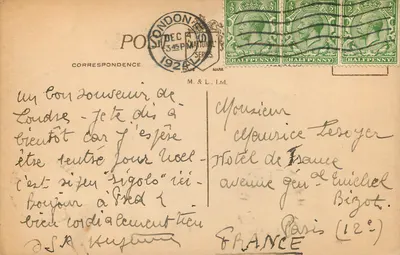 POS
CORRESPONDENCE
M. & L., Ltd.
LONDON
DEC 4
3.15 PM
1924
HALFPENNY
HALFPENNY
HALFPENNY
un bon souvenir de
Londres - Je te dis à
bientôt car j'espère
être rentré pour Noel -
c'est si peu "rigolo" ici -
Bonjour à Fred &
bien cordialement tien
Monsieur
Maurice
Hotel de France
avenue génal Michel
Bizot.
Paris (12e)
FRANCE